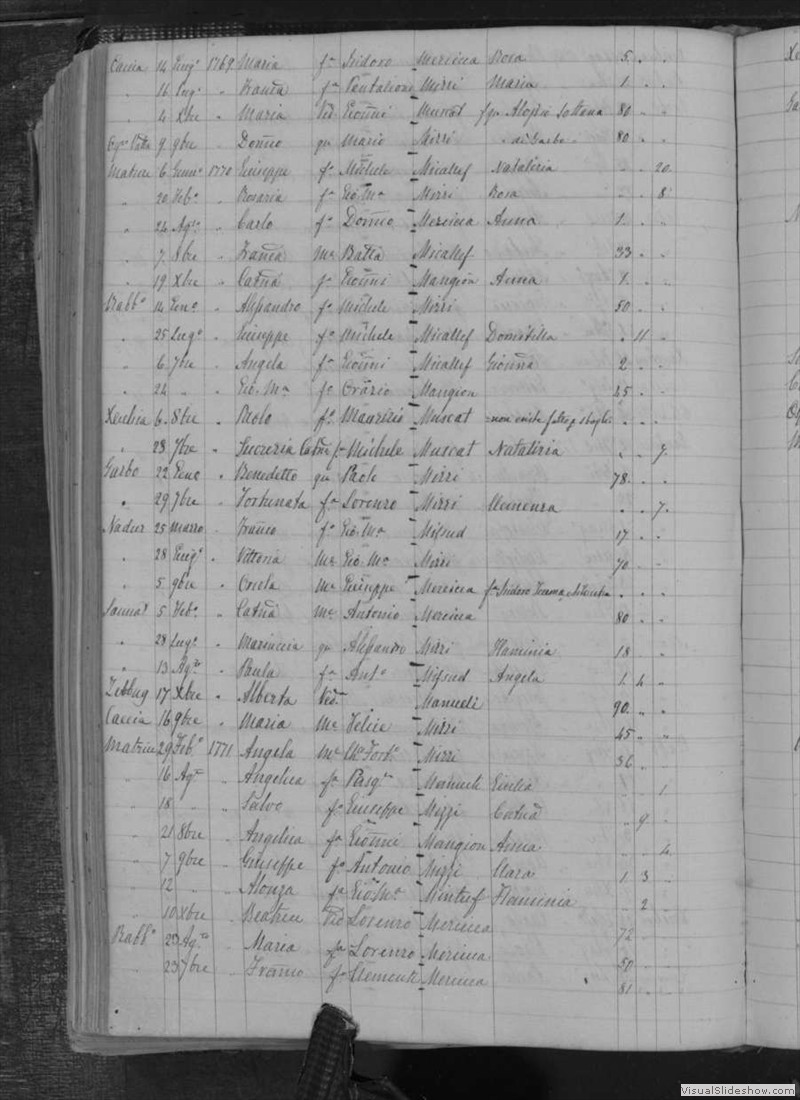 Caccia 14 Giug.o 1769 Maria f.a Isidoro Mercieca Rosa 5 " "
" 16 Lug.o " Franca f.a Pantalione Mizzi Maria 1 " "
" 4 Xbre " Maria Ved. Gioanni Muscat Aloysio Sottana 80 " "
9 9bre " Domco qu Mario Mizzi di Garbo 80 " "
Matrice 6 Genn.o 1770 Giuseppe f.o Michele Micallef Natalizia " " 20
" 20 Feb.o " Rosaria f.a Gio Ma Mizzi Rosa " " 8
" 24 Ag.o " Carlo f.o Domco Mercieca Anna 1 " "
" 7 8bre " Franca Me Batta Micallef 33 " "
" 19 Xbre " Catna f.a Gioanni Mangion Anna 1 " "
Rabb.o 14 Gen.o " Alessandro f.o Michele Mizzi 50 " "
" 25 Lug.o " Giuseppe f.o Michele Micallef Domitilla " 11 "
" 6 7bre " Angela f.a Gioanni Micallef Gioanna 2 " "
" 24 " " Gio. Ma f.o Orazio Mangion 25 " "
Xeuchia 6 8bre " Paolo f.o Maurizio Muscat = non esiste " " "
" 23 7bre " Lucrezia Catna f.a Michele Muscat Natalizia " " 7
Garbo 22 Geno " Benedetto qu Paolo Mizzi 78 " "
" 29 7bre " Fortunata f.a Lorenzo Mizzi Clemenza " " 7
Nadur 25 Marzo " Franco f.o Gio. Ma Mifsud 17 " "
" 28 Giug.o " Vittoria Me Gio. Ma Mizzi 70 " "
" 5 9bre " Orsola Me Giuseppe Mercieca f.a Isidoro " " "
Sannat 5 Feb.o " Catna Me Antonio Mercieca 80 " "
" 28 Lug.o " Marinccia qu Alessandro Mizzi Flaminia 18 " "
" 13 Ag.o " Paula f.a Ant.o Mifsud Angela 1 4 "
Zebbug 17 Xbre " Alberta Ved. Manueli 90 " "
Caccia 16 9bre " Maria Me Felice Mizzi 45 " "
Matrice 29 Feb.o 1771 Angela Me Mizzi 36 "
" 16 Ag.o " Angelica f.a Pasq.e Manueli " " 1
" 18 " " Salvo f.o Giuseppe Mizzi Catna " 9 "
" 21 8bre " Angelica f.a Gioanni Mangion Anna " " 4
" 7 9bre " Giuseppe f.o Antonio Mizzi Clara 1 3 "
" 12 " " Alonza f.a Gio Ma Mintuf Flaminia " 2
" 10 Xbre " Beatrice Ved Lorenzo Mercieca 72
Rabb.o 25 Ag.o " Maria f.a Lorenzo Mercieca 50
" 23 7bre " Franco f.o Clemente Mercieca 81
VisualSlideshow.com